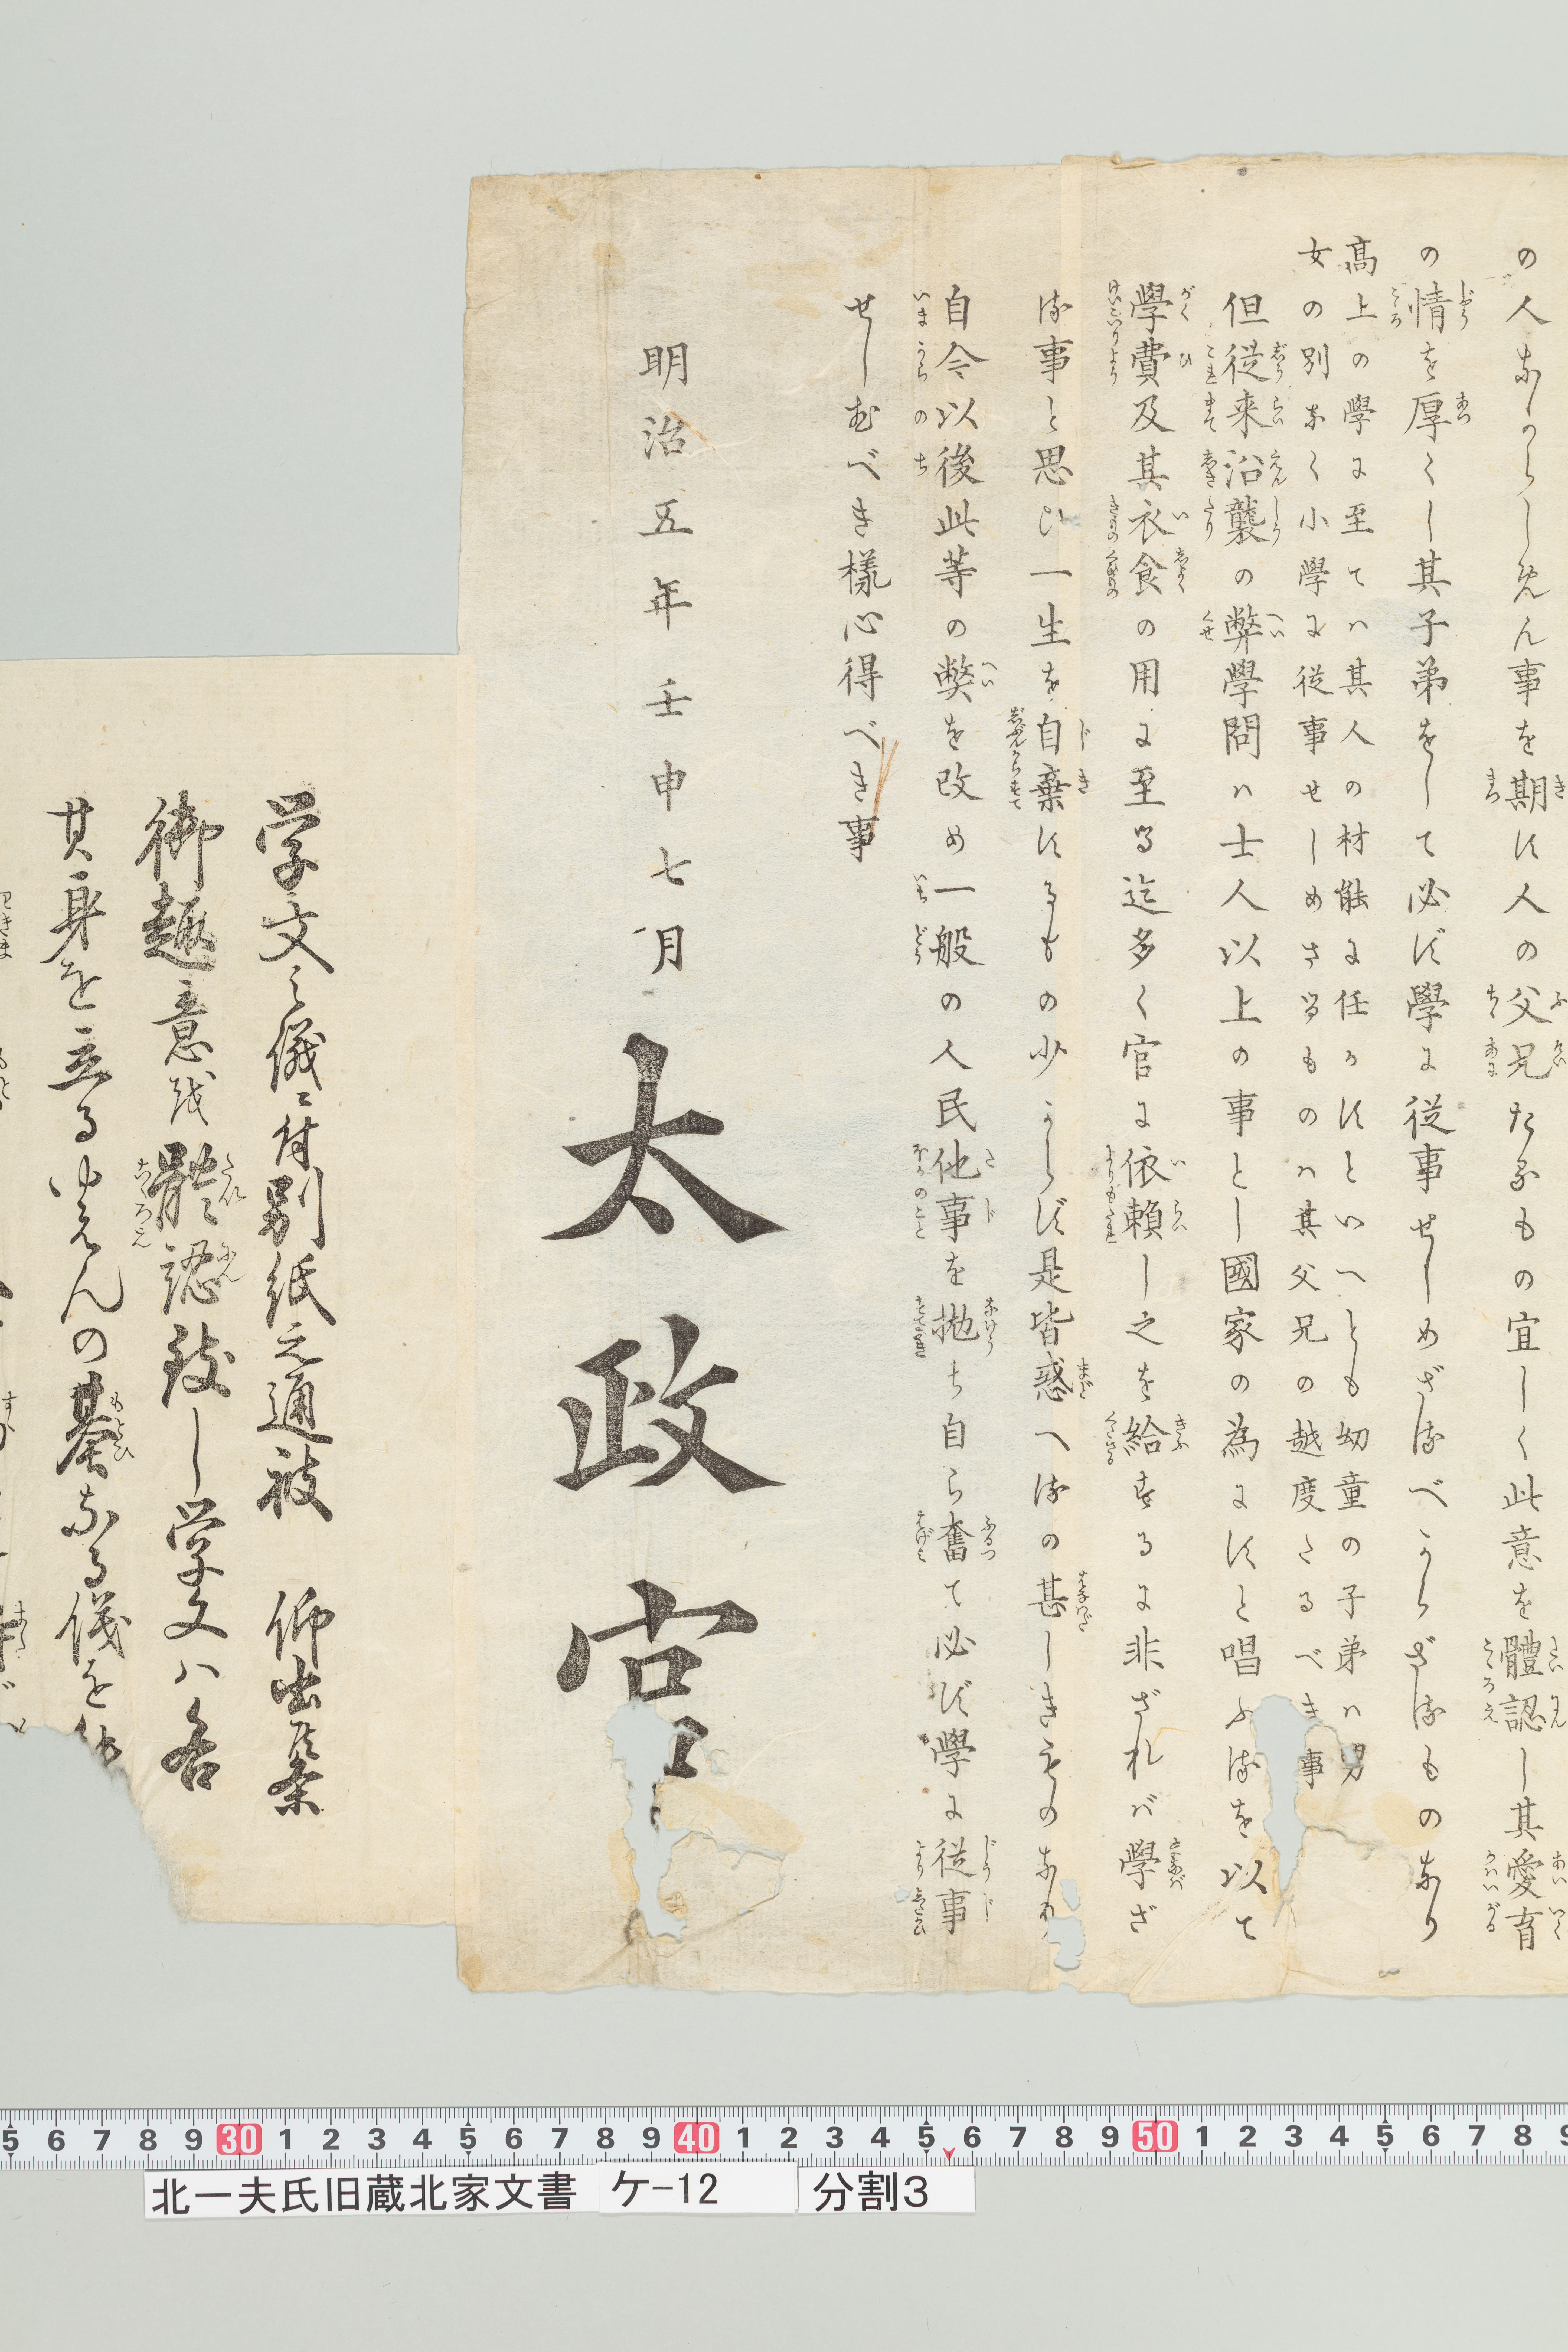 の人なからしめん事を期す人の父兄たるもの宜しく此意を體認し其愛育
の情を厚くし其子弟をして必ず學に従事せしめざるべからざるものなり
高上の學に至てハ其人の材能に任かすといへとも幼童の子弟ハ男
女の別なく小學に従事せしめさるものハ其父兄の越度たるべき事
但従来沿襲の弊學問ハ士人以上の事とし國家の為にすと唱ふるを以て
學費及其衣食の用に至る迄多く官に依頼し之を給するに非ざれバ學ざ
る事と思ひ一生を自棄するもの少からず是皆惑へるの甚しきものなり
自今以後此等の弊を改め一般の人民他事を抛ち自ら奮て必ず學に従事
せしむべき様心得べき事
明治五年壬申七月
太政官
学文之儀ニ付別紙之通被 仰出候条
御趣意戝體認致し学文ハ各
其身を立るゆえんの基なる儀を
5 6 7 8 9 30 1 2 3 4 5 6 7 8 9 40 1 2 3 4 5 6 7 8 9 50 1 2 3 4 5 6 7 8 9
北一夫氏旧蔵北家文書 ケ-12 分割3